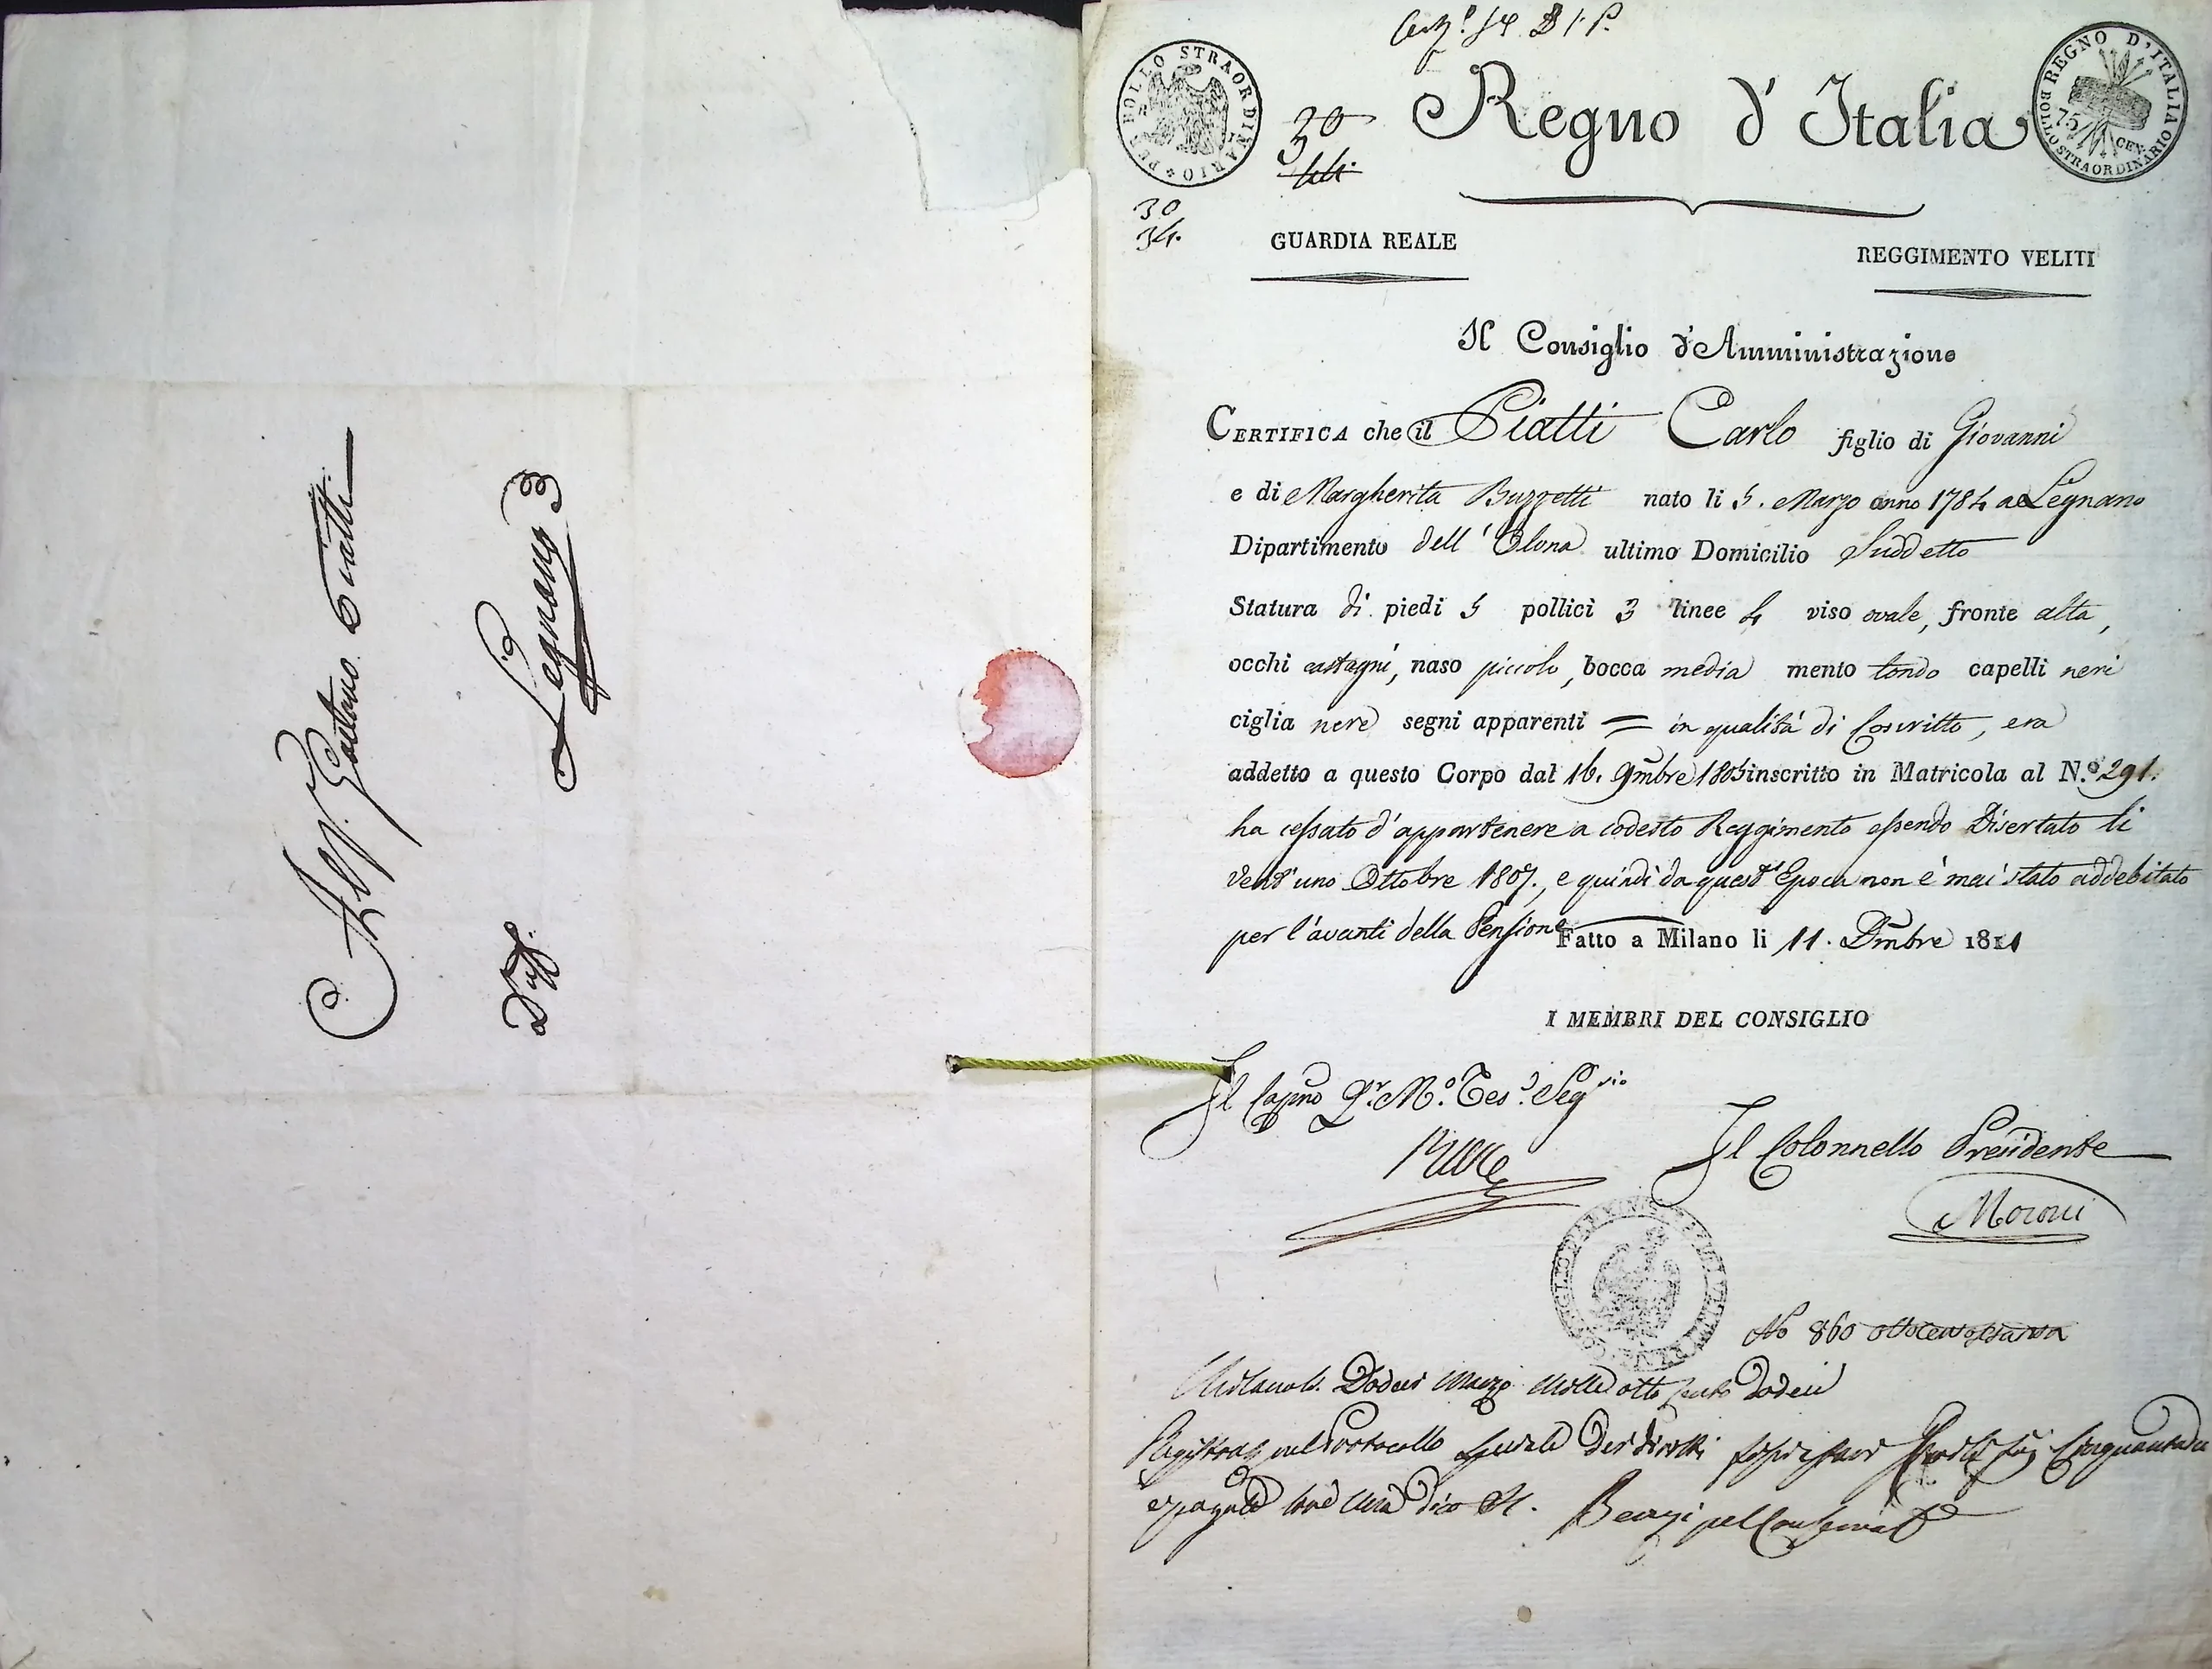 Al Sig.r Gaetano Piatti
Diff. Legnano
PER BOLLO STRAORDINARIO
30
30
34.
Regno d'Italia
REGNO D'ITALIA
BOLLO STRAORDINARIO
75 CEN.
GUARDIA REALE
REGGIMENTO VELITI
Il Consiglio d'Amministrazione
CERTIFICA che il Piatti Carlo figlio di Giovanni
e di Margherita Buzzetti nato li 5. Marzo anno 1784 a Legnano
Dipartimento dell'Olona ultimo Domicilio Suddetto
Statura di piedi 5 pollici 3 linee 4 viso ovale, fronte alta,
occhi castagni, naso piccolo, bocca media mento tondo capelli neri
ciglia nere segni apparenti = in qualità di Coscritto, era
addetto a questo Corpo dal 16. 9mbre 1805 inscritto in Matricola al N.º 291.
ha cessato d'appartenere a codesto Reggimento essendo Disertato li
vent'uno Ottobre 1807., e quindi da quest'Epoca non è mai stato addebitato
per l'avanti della Pensione
Fatto a Milano li 11. Dmbre 1811
I MEMBRI DEL CONSIGLIO
Il Capno Q.r M.º Tes.e Seg.rio
Il Colonnello Presidente
Moroni
No 860 ottocentosessanta
Milano li. Dodici Marzo Mille otto cento dodici
Registrato nel Protocollo
e pagato